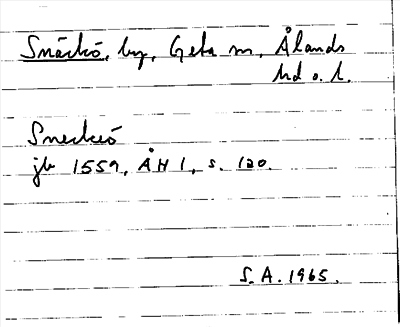 Snäckö, by, Geta sn, Ålands
hd o. l.
Sneckeö
jb 1559, ÅH 1, s. 120.
S.A. 1965.